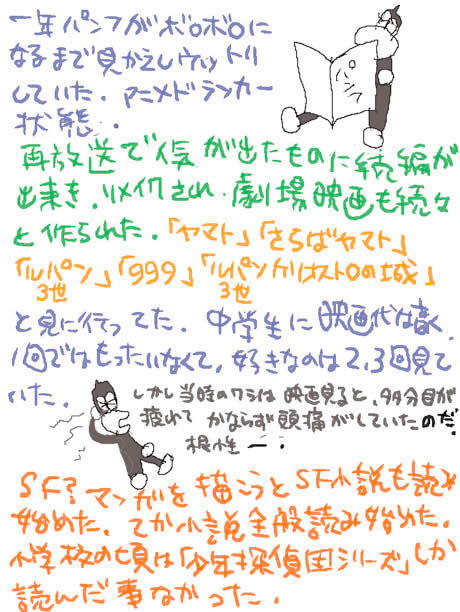 一年パンフがボロボロに
なるまで見かえしウットリ
していた。アニメドランカー
状態。
再放送で人気が出たものに続編が
出来き、リメイクされ、劇場映画も続々
と作られた。「ヤマト」「さらばヤマト」
「ルパン3世」「999」「ルパン3世カリオストロの城」
と見に行ってた。中学生に映画代は高く
1回ではもったいなくて、好きなのは2、3回見て
いた。
しかし当時のワシは映画見ると、99分目が
疲れて かならず頭痛がしていたのだ。
根性ー!
SF?マンガを描こうとSF小説も読み
始めた。てか小説全般読み始めた。
小学校の頃は「少年探偵団シリーズ」しか
読んだ事なかった。